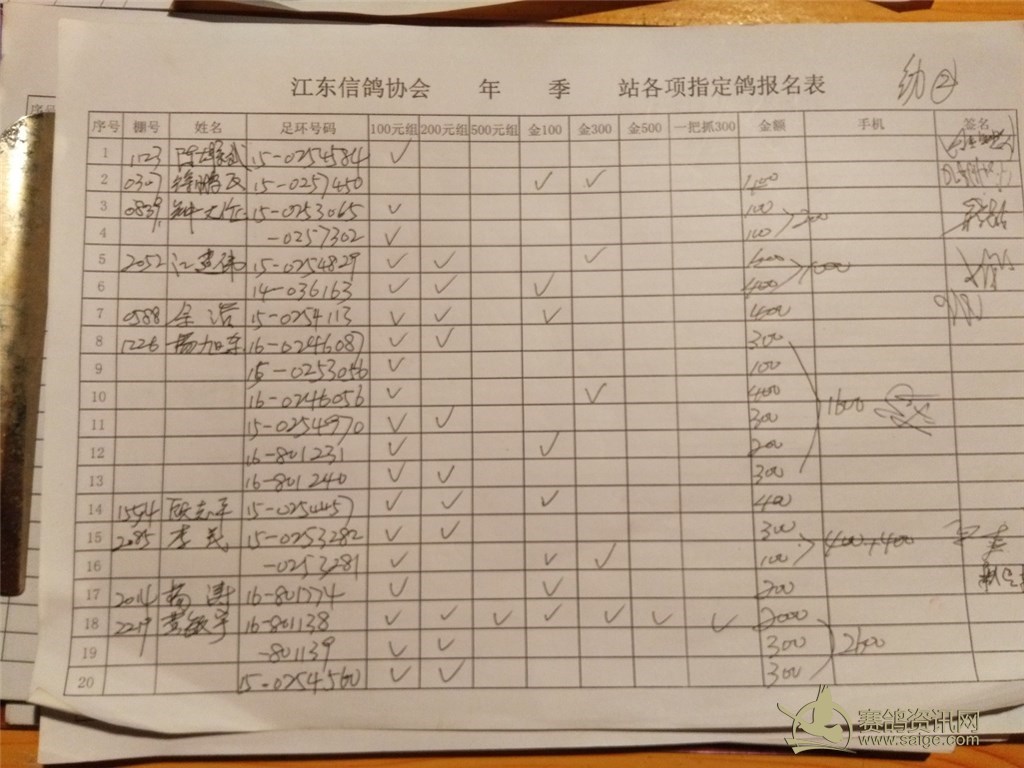 江东信鸽协会 年 季 站各项指定鸽报名表
幼②
序号 棚号 姓名 足环号码 100元组 200元组 500元组 金100 金300 金500 一把抓300 金额 手机 签名
1 1123 15-0254584 ✓
2 0307 15-0257450 ✓ ✓
3 0839 15-0253065 ✓ 100
4 -0257302 ✓ 100 200
5 2052 江 15-0254829 ✓ ✓ ✓
6 14-036163 ✓ ✓ ✓ 400
7 0588 余浩 15-0254113 ✓ ✓ 400
8 1226 杨旭东 16-0246087 ✓ ✓ 300
9 15-0253056 ✓ 100
10 16-0246056 ✓ ✓ 400
11 15-0254970 ✓ ✓ 300 1600
12 16-801231 ✓ ✓ 200
13 16-801240 ✓ ✓ 300
14 1554 15-0254457 ✓ ✓ ✓ 400
15 2085 李民 15-0253282 ✓ ✓ 300
16 -0253281 ✓ ✓ ✓ 100 400+400
17 2014 杨涛 16-801774 ✓ ✓ 200
18 2219 16-801138 ✓ ✓ ✓ ✓ ✓ ✓ ✓ 2000
19 -801139 ✓ ✓ 300 2600
20 15-0254560 ✓ ✓ 300
赛鸽资讯网
www.saige.com